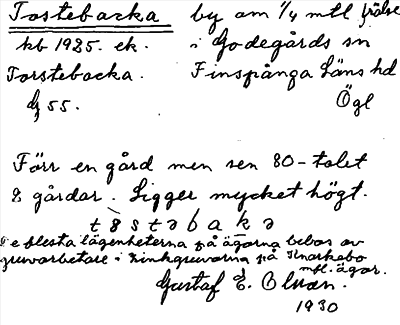 Tostebacka by om 1/4 mtl frälse
kb 1925. ek. i Godegårds sn
Torstebacka. Finspånga Läns hd
G 55. Ögl
Förr en gård men sen 80-talet
2 gårdar. Ligger mycket högt.
De flesta lägenheterna på ägorna bebos av
gruvarbetare i Zinkgruvorna på Knorkebo
mfl. ägor.
Gustaf E.
1930